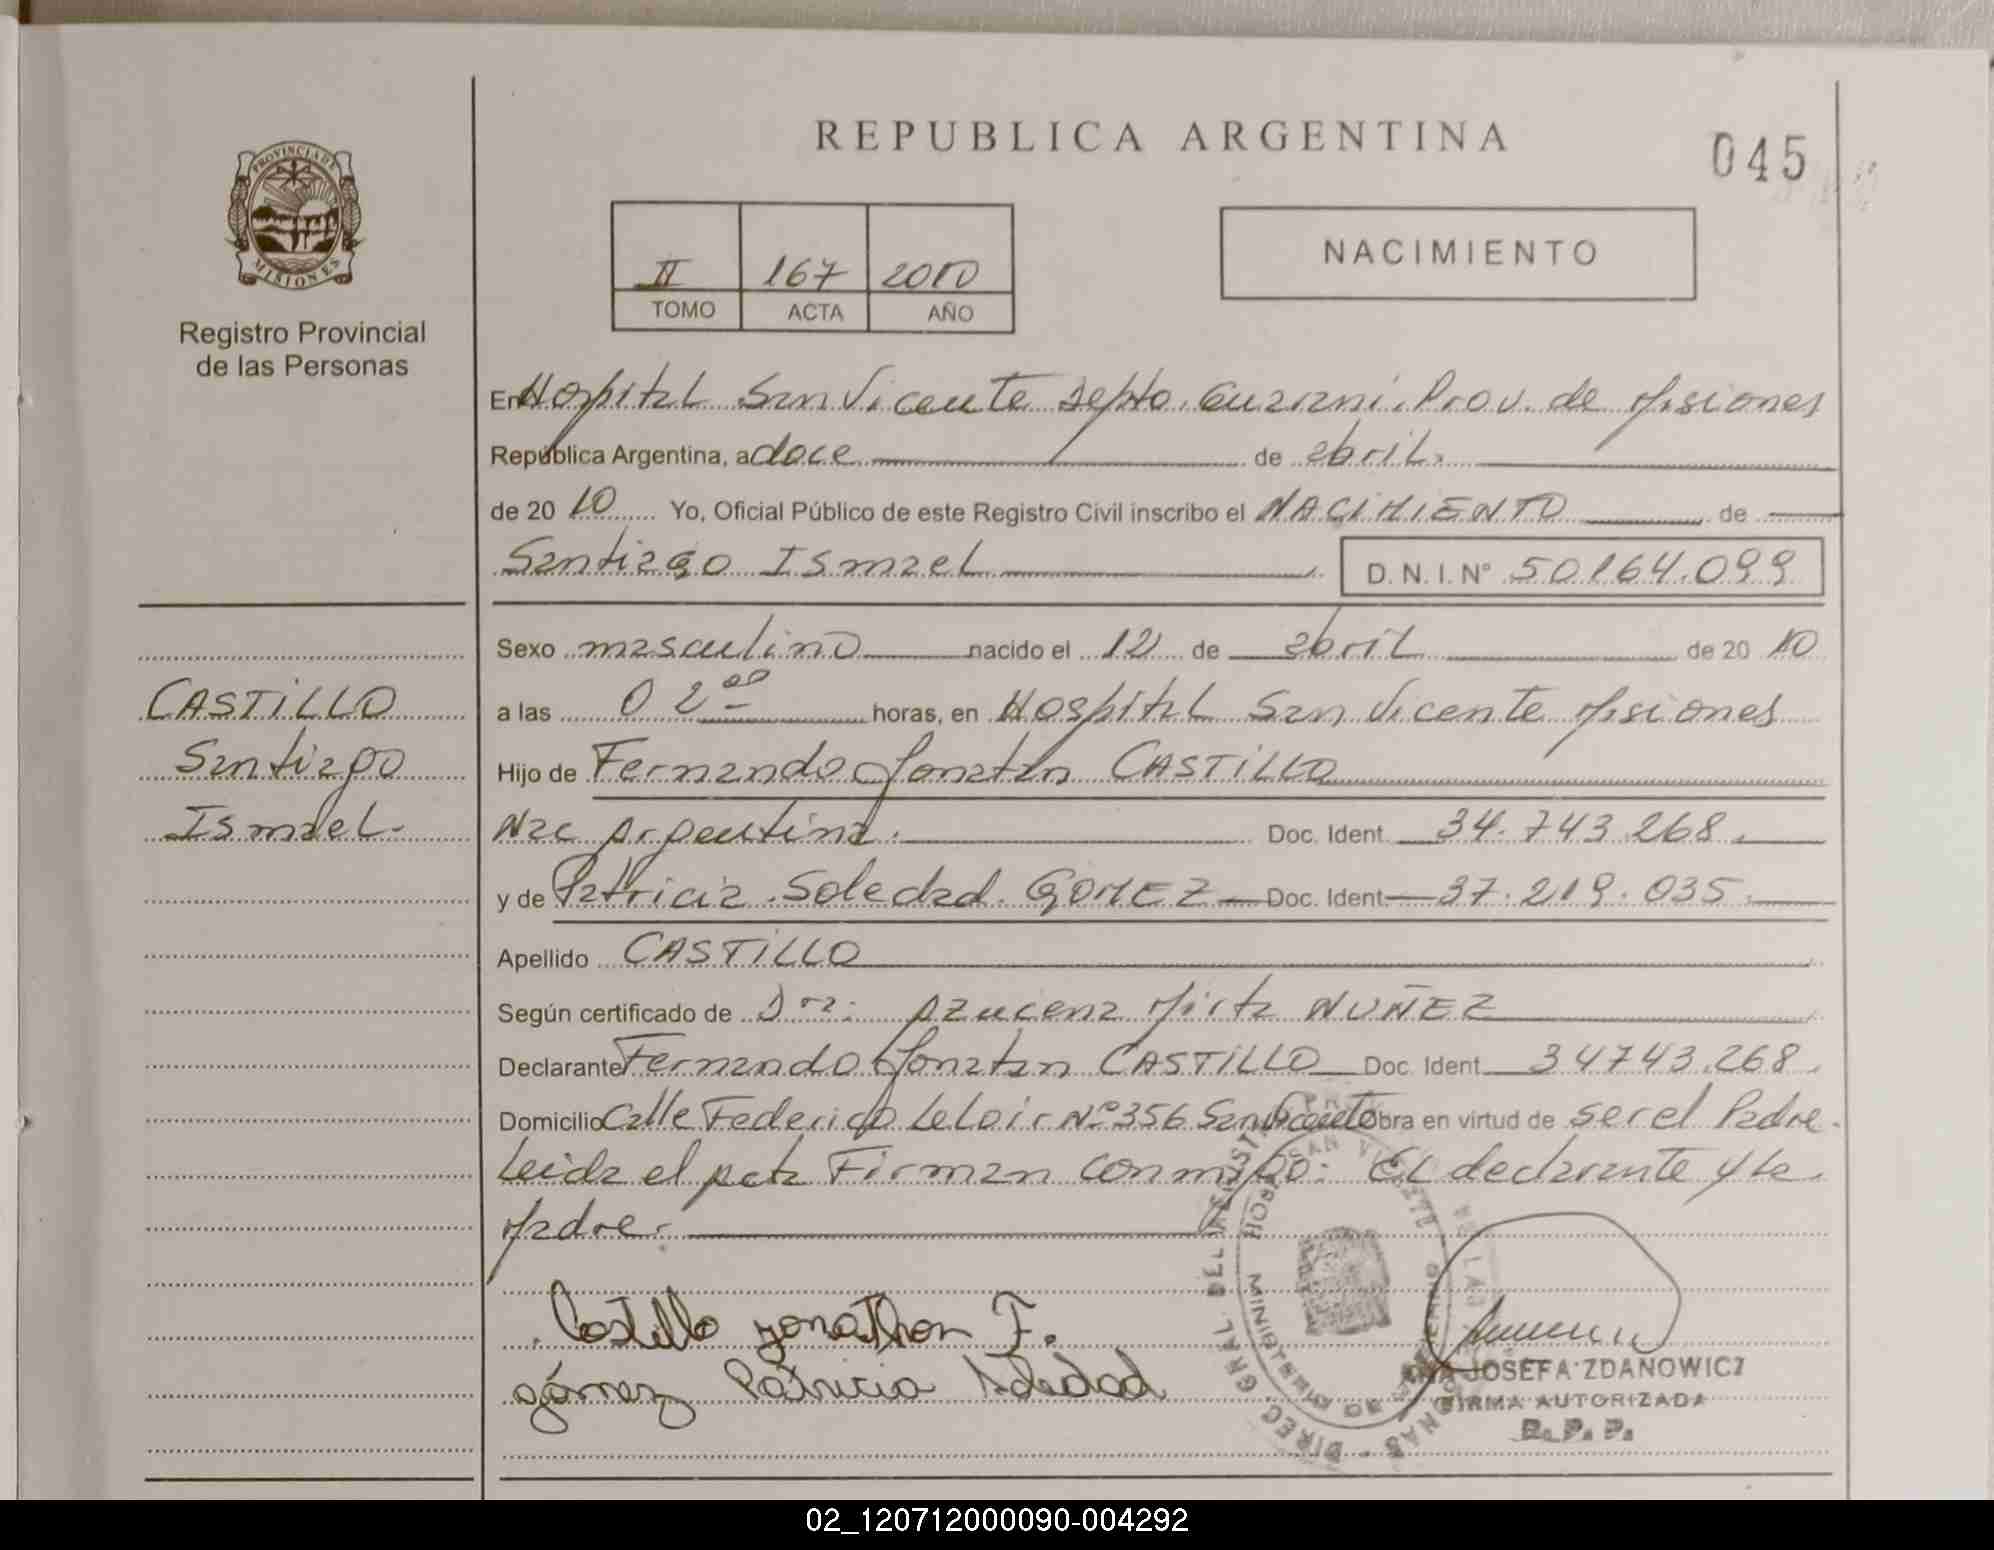 REPUBLICA ARGENTINA
045
PROVINCIA DE
MISIONES
Registro Provincial
de las Personas
II 167 2010
TOMO ACTA AÑO
NACIMIENTO
En Hospital San Vicente Depto. Guarani. Prov. de Misiones
República Argentina, a doce de abril.
de 20 10 Yo, Oficial Público de este Registro Civil inscribo el NACIMIENTO de
Santiago Ismael D.N.I. Nº 50.164.099
Sexo masculino nacido el 12 de abril de 20 10
CASTILLO
Santiago
Ismael.
a las 02 00 horas, en Hospital San Vicente Misiones
Hijo de Fernando Jonatan CASTILLO
Nac Argentina. Doc. Ident. 34.743.268.
y de Patricia Soledad GOMEZ Doc. Ident. 37.219.035.
Apellido CASTILLO
Según certificado de Dra: Azucena Mirta NUÑEZ
Declarante Fernando Jonatan CASTILLO Doc. Ident. 34743.268.
Domicilio Calle Federico Leloir Nº 356 San Vicente Obra en virtud de ser el Padre.
Leida el acta Firman conmigo: El declarante y la
Madre.
Castillo Jonathan F.
gómez Patricia Soledad
DIREC. GRAL. DEL REGIST. PR
HOSP. SAN VICENTE
MINISTERIO DE GOBIERNO
JOSEFA ZDANOWICZ
FIRMA AUTORIZADA
R. P. P.
02_120712000090-004292